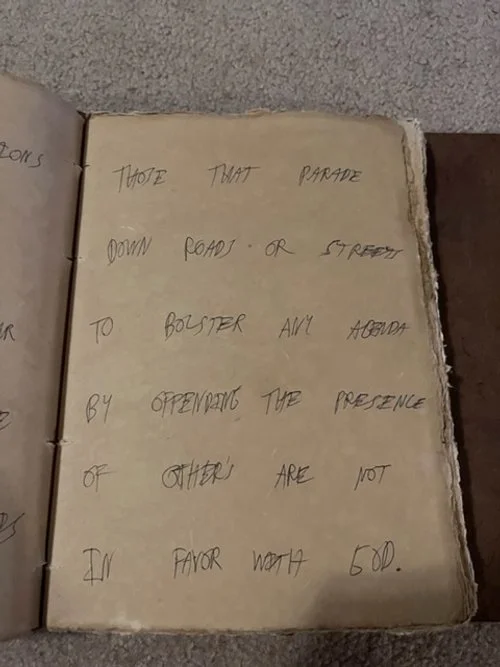 IONS
THOSE THAT PARADE
DOWN ROADS OR STREETS
TO BOLSTER ANY AGENDA
BY OFFENDING THE PRESENCE
OF OTHER'S ARE NOT
IN FAVOR WITH GOD.